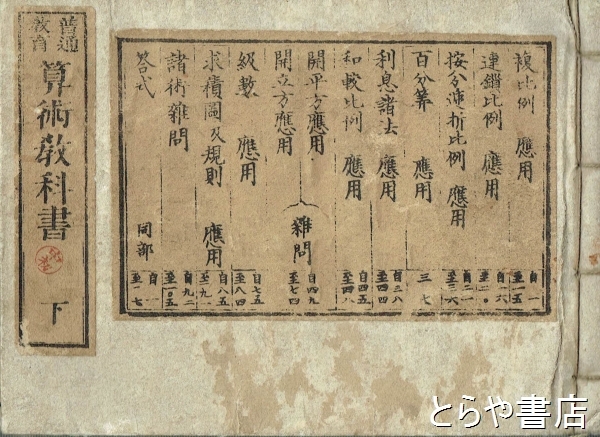 普通教育
算術教科書
下
複比例 應用 自一至一五
連鎖比例 應用 自一六至二〇
按分遞折比例 應用 自二一至三六
百分算 應用 三七
利息諸法 應用 自三八至四四
和較比例 應用 自四五至四八
開平方應用
開立方應用
雜問 自四九至七四
級數 應用 自七五至八四
求積圖及規則 應用 自八五至九一
諸術雜問 自九二至一〇五
答式 同部 自一至一七
とらや書店